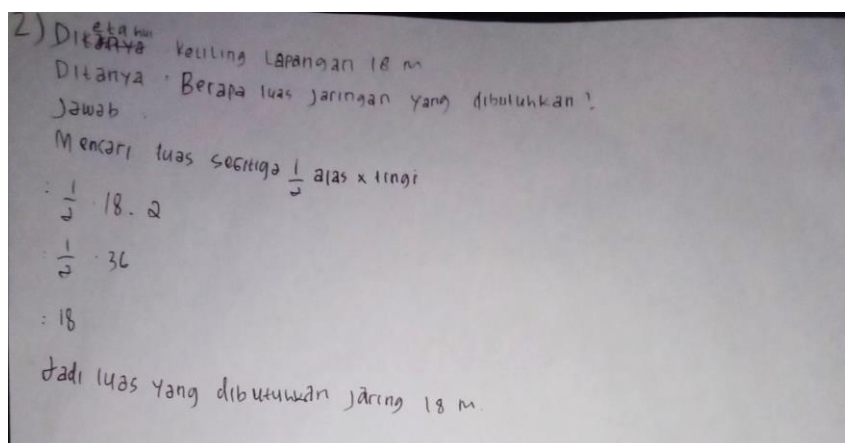 2) Diketahui keliling Lapangan 18 m
Ditanya : Berapa luas jaringan yang dibutuhkan ?
Jawab :
Mencari luas segitiga 1/2 alas x tingi
: 1/2 . 18 . 2
: 1/2 . 36
: 18
Jadi luas yang dibutuhkan jaring 18 m.